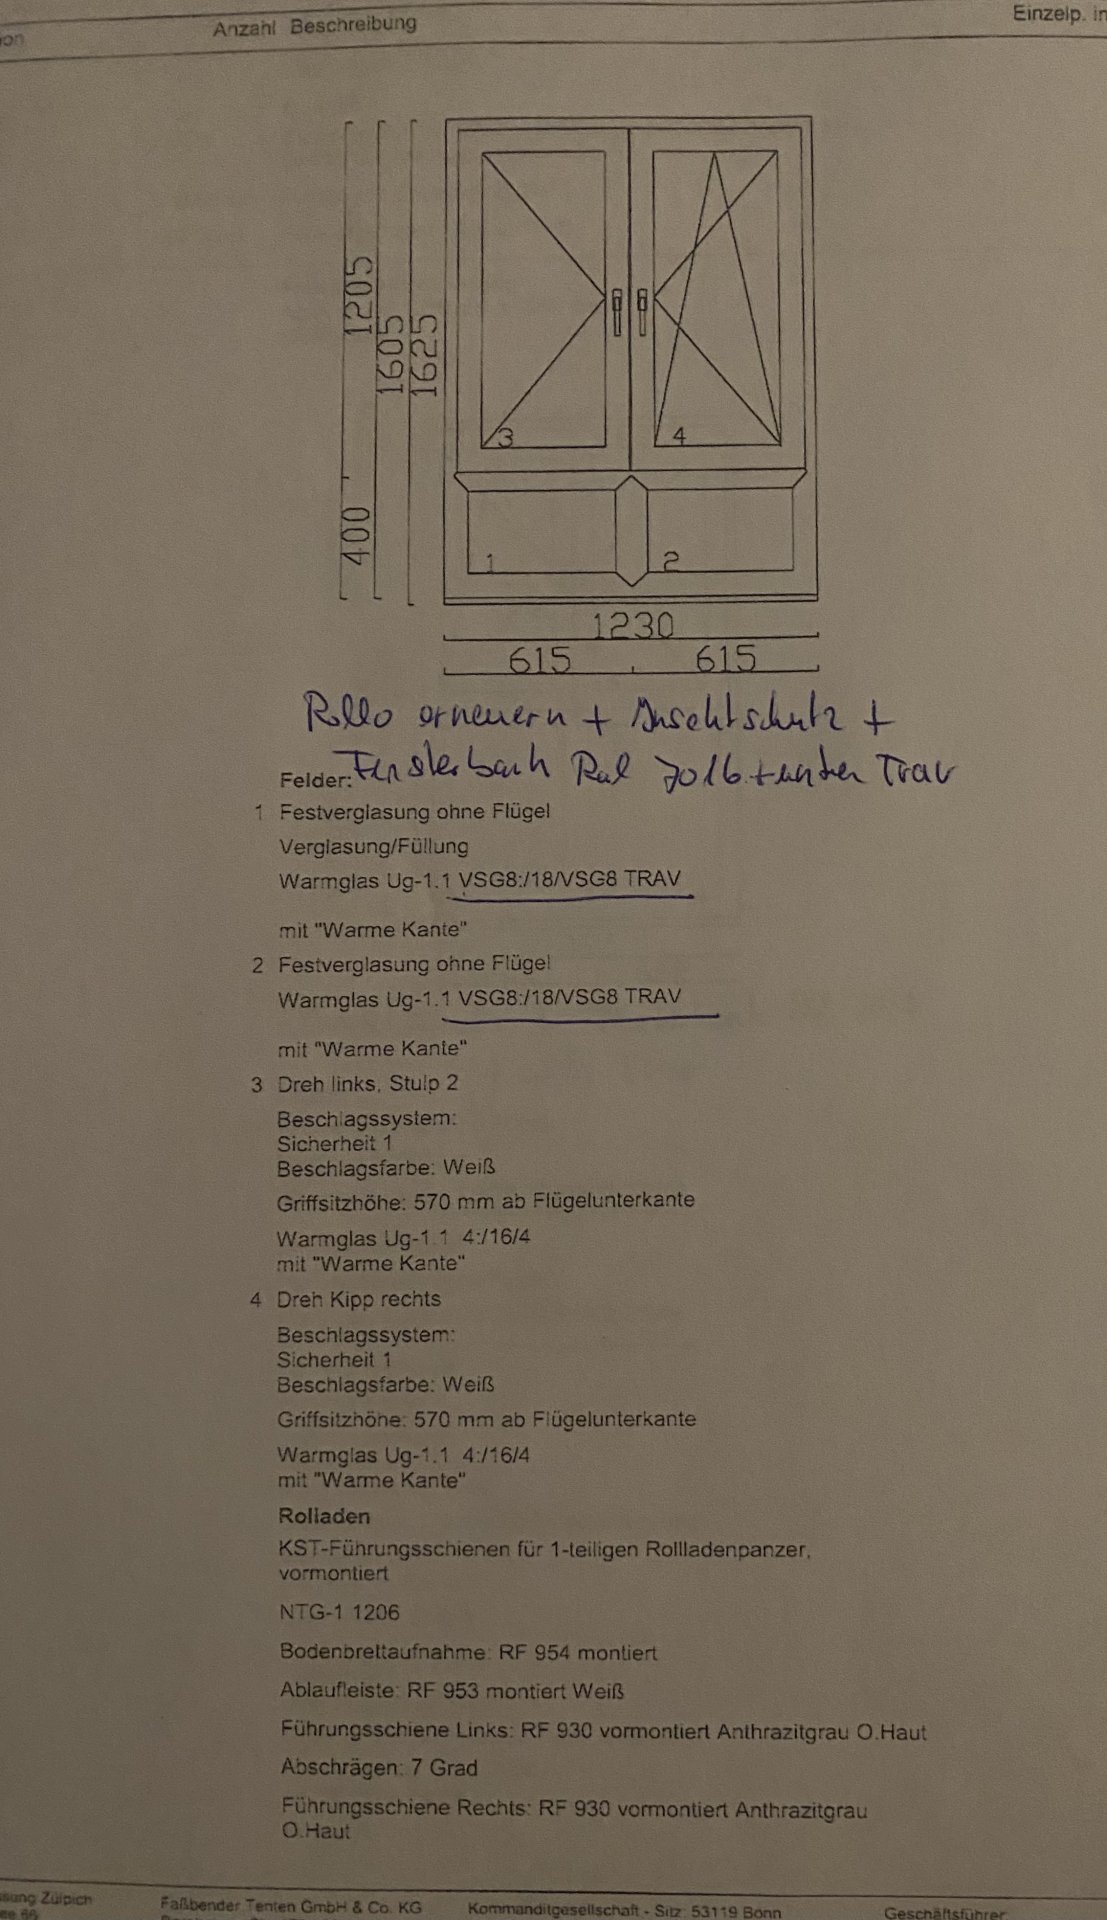 Anzahl Beschreibung
Einzelp. in
1205
1605
1625
400
3
4
1
2
1230
615
615
Rollo erneuern + Insektschutz +
Fensterbank Ral 7016 + unten Trav
Felder:
1 Festverglasung ohne Flügel
Verglasung/Füllung
Warmglas Ug-1.1 VSG8:/18/VSG8 TRAV
mit "Warme Kante"
2 Festverglasung ohne Flügel
Warmglas Ug-1.1 VSG8:/18/VSG8 TRAV
mit "Warme Kante"
3 Dreh links, Stulp 2
Beschlagssystem:
Sicherheit 1
Beschlagsfarbe: Weiß
Griffsitzhöhe: 570 mm ab Flügelunterkante
Warmglas Ug-1.1 4:/16/4
mit "Warme Kante"
4 Dreh Kipp rechts
Beschlagssystem:
Sicherheit 1
Beschlagsfarbe: Weiß
Griffsitzhöhe: 570 mm ab Flügelunterkante
Warmglas Ug-1.1 4:/16/4
mit "Warme Kante"
Rolladen
KST-Führungsschienen für 1-teiligen Rollladenpanzer,
vormontiert
NTG-1 1206
Bodenbrettaufnahme: RF 954 montiert
Ablaufleiste: RF 953 montiert Weiß
Führungsschiene Links: RF 930 vormontiert Anthrazitgrau O.Haut
Abschrägen: 7 Grad
Führungsschiene Rechts: RF 930 vormontiert Anthrazitgrau
O.Haut
Zülpich
Faßbender Tenten GmbH & Co. KG
Kommanditgesellschaft - Sitz: 53119 Bonn
Geschäftsführer